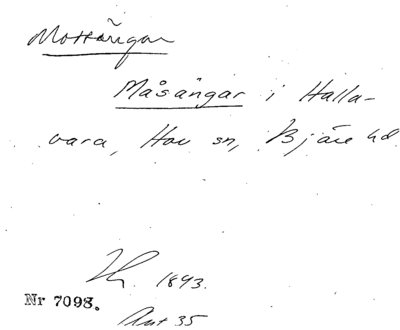 Mossängar
Måsängar i Halla-
vara, Hov sn, Bjäre hd
1893.
Nr 7098.
35